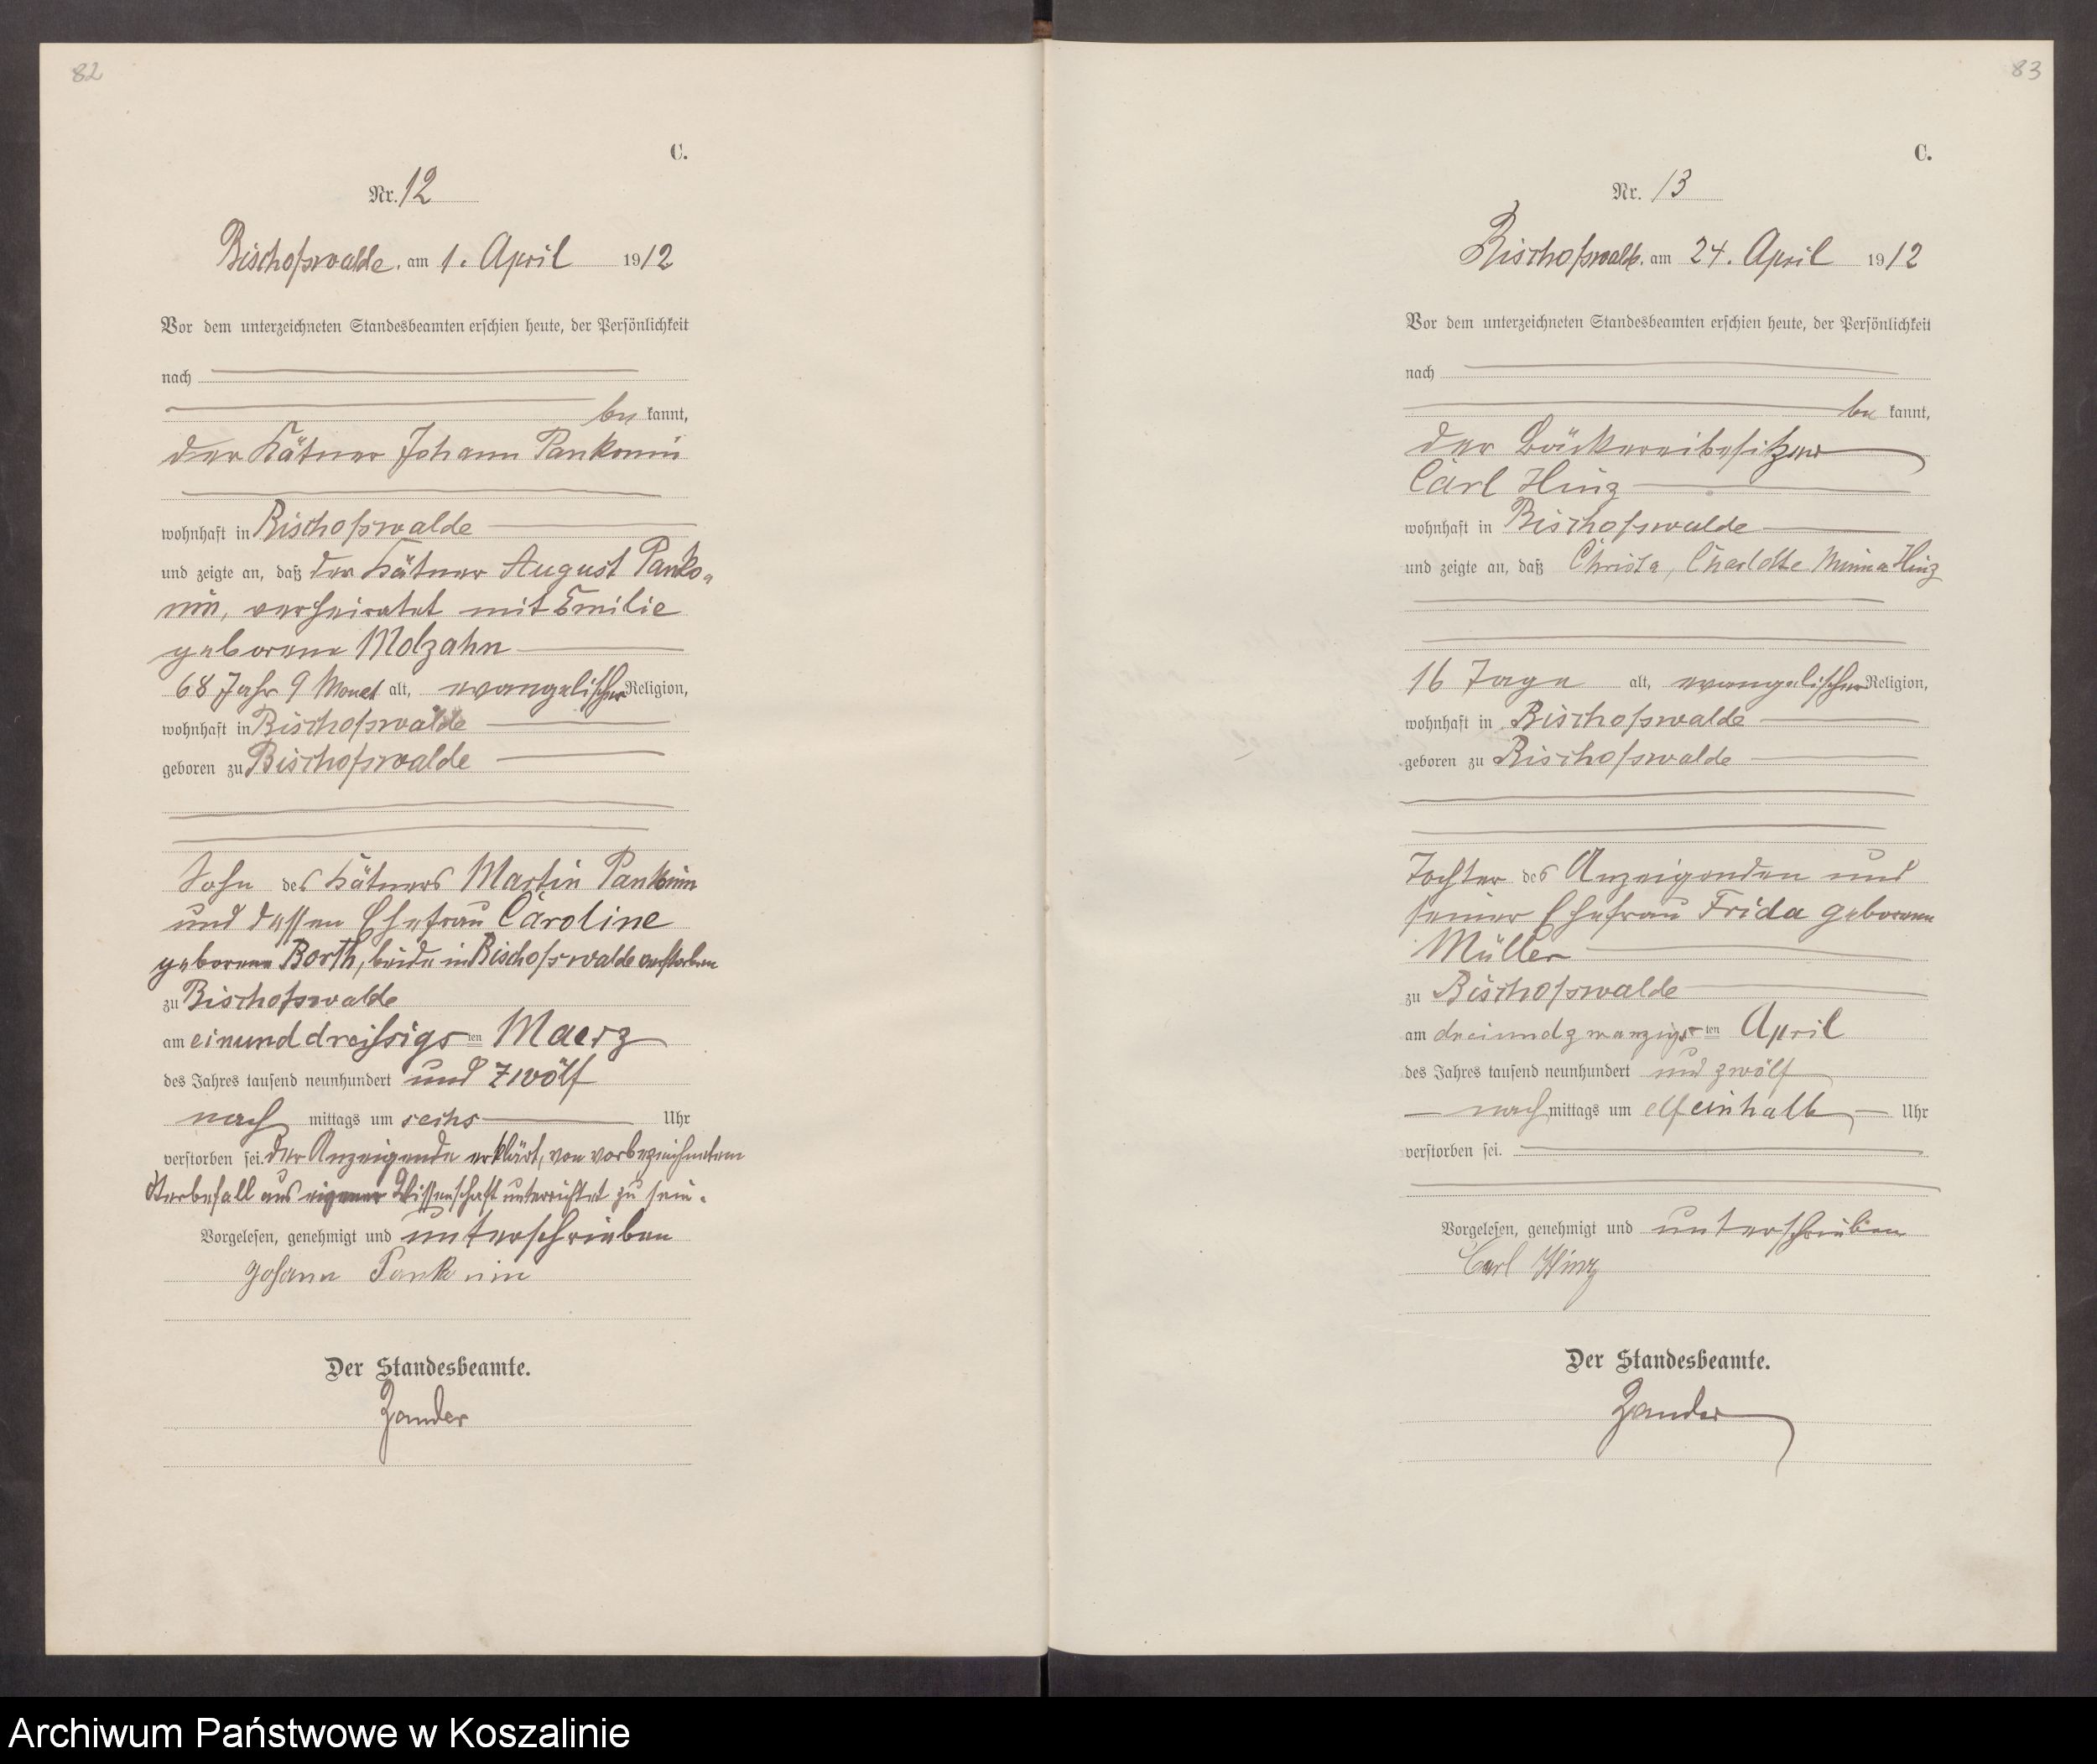 82
C.
Nr. 12
Bischofswalde, am 1. April 1912
Vor dem unterzeichneten Standesbeamten erschien heute, der Persönlichkeit
nach
be kannt,
der Kätner Johann Pankonin
wohnhaft in Bischofswalde
und zeigte an, daß der Kätner August Panko„
nin, verheiratet mit Emilie
geborene Molzahn
68 Jahr 9 Monat alt, evangelischer Religion,
wohnhaft in Bischofswalde
geboren zu Bischofswalde
Sohn des Kätners Martin Pankonin
und dessen Ehefrau Caroline
geborene Borth, beide in Bischofswalde verstorben
zu Bischofswalde
am einunddreissigsten Maerz
des Jahres tausend neunhundert und zwölf
nach mittags um sechs Uhr
verstorben sei. Der Anzeigende erklärt, von vorbezeichnetem
Sterbefall aus eigener Wissenschaft unterrichtet zu sein.
Vorgelesen, genehmigt und unterschrieben
Johann Panknin
Der Standesbeamte.
Zander
83
C.
Nr. 13
Bischofswalde, am 24. April 1912
Vor dem unterzeichneten Standesbeamten erschien heute, der Persönlichkeit
nach
be kannt,
der Bäckereibesitzer
Carl Hinz
wohnhaft in Bischofswalde
und zeigte an, daß Christa, Charlotte Minna Hinz
16 Tage alt, evangelischer Religion,
wohnhaft in Bischofswalde
geboren zu Bischofswalde
Tochter des Anzeigenden und
seiner Ehefrau Frida geborene
Müller
zu Bischofswalde
am dreiundzwanzigsten April
des Jahres tausend neunhundert und zwölf
nach mittags um elfeinhalb Uhr
verstorben sei.
Vorgelesen, genehmigt und unterschrieben
Carl Hinz
Der Standesbeamte.
Zander
Archiwum Państwowe w Koszalinie